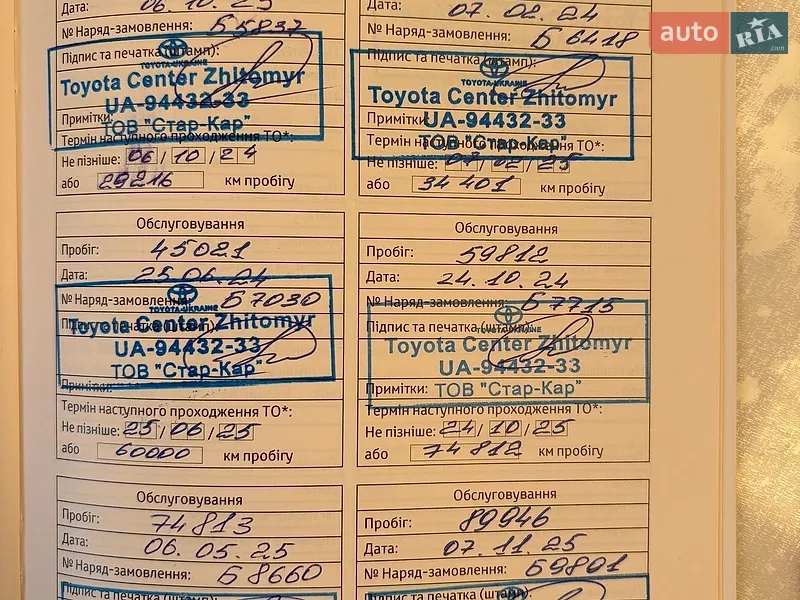 Дата: 06.10.23
№ Наряд-замовлення: Б5837
Підпис та печатка (штамп):
TOYOTA-UKRAINE
Toyota Center Zhitomyr
UA-94432-33
Примітки:
ТОВ "Стар-Кар"
Термін наступного проходження ТО*:
Не пізніше: 06/10/24
або 29216 км пробігу
Дата: 07.02.24
№ Наряд-замовлення: Б6418
Підпис та печатка (штамп):
TOYOTA-UKRAINE
Toyota Center Zhitomyr
Примітки: UA-94432-33
ТОВ "Стар-Кар"
Термін наступного проходження ТО*:
Не пізніше: 07/02/25
або 34401 км пробігу
auto RIA .com
Обслуговування
Пробіг: 45021
Дата: 25.06.24
№ Наряд-замовлення: Б7030
TOYOTA-UKRAINE
Toyota Center Zhitomyr
UA-94432-33
ТОВ "Стар-Кар"
Примітки:
Термін наступного проходження ТО*:
Не пізніше: 25/06/25
або 60000 км пробігу
Обслуговування
Пробіг: 59812
Дата: 24.10.24
№ Наряд-замовлення: Б7715
Підпис та печатка (штамп):
TOYOTA-UKRAINE
Toyota Center Zhitomyr
UA-94432-33
Примітки: ТОВ "Стар-Кар"
Термін наступного проходження ТО*:
Не пізніше: 24/10/25
або 74812 км пробігу
Обслуговування
Пробіг: 74813
Дата: 06.05.25
№ Наряд-замовлення: Б8660
Підпис та печатка (штамп):
Обслуговування
Пробіг: 89946
Дата: 07.11.25
№ Наряд-замовлення: Б9801
Підпис та печатка (штамп):